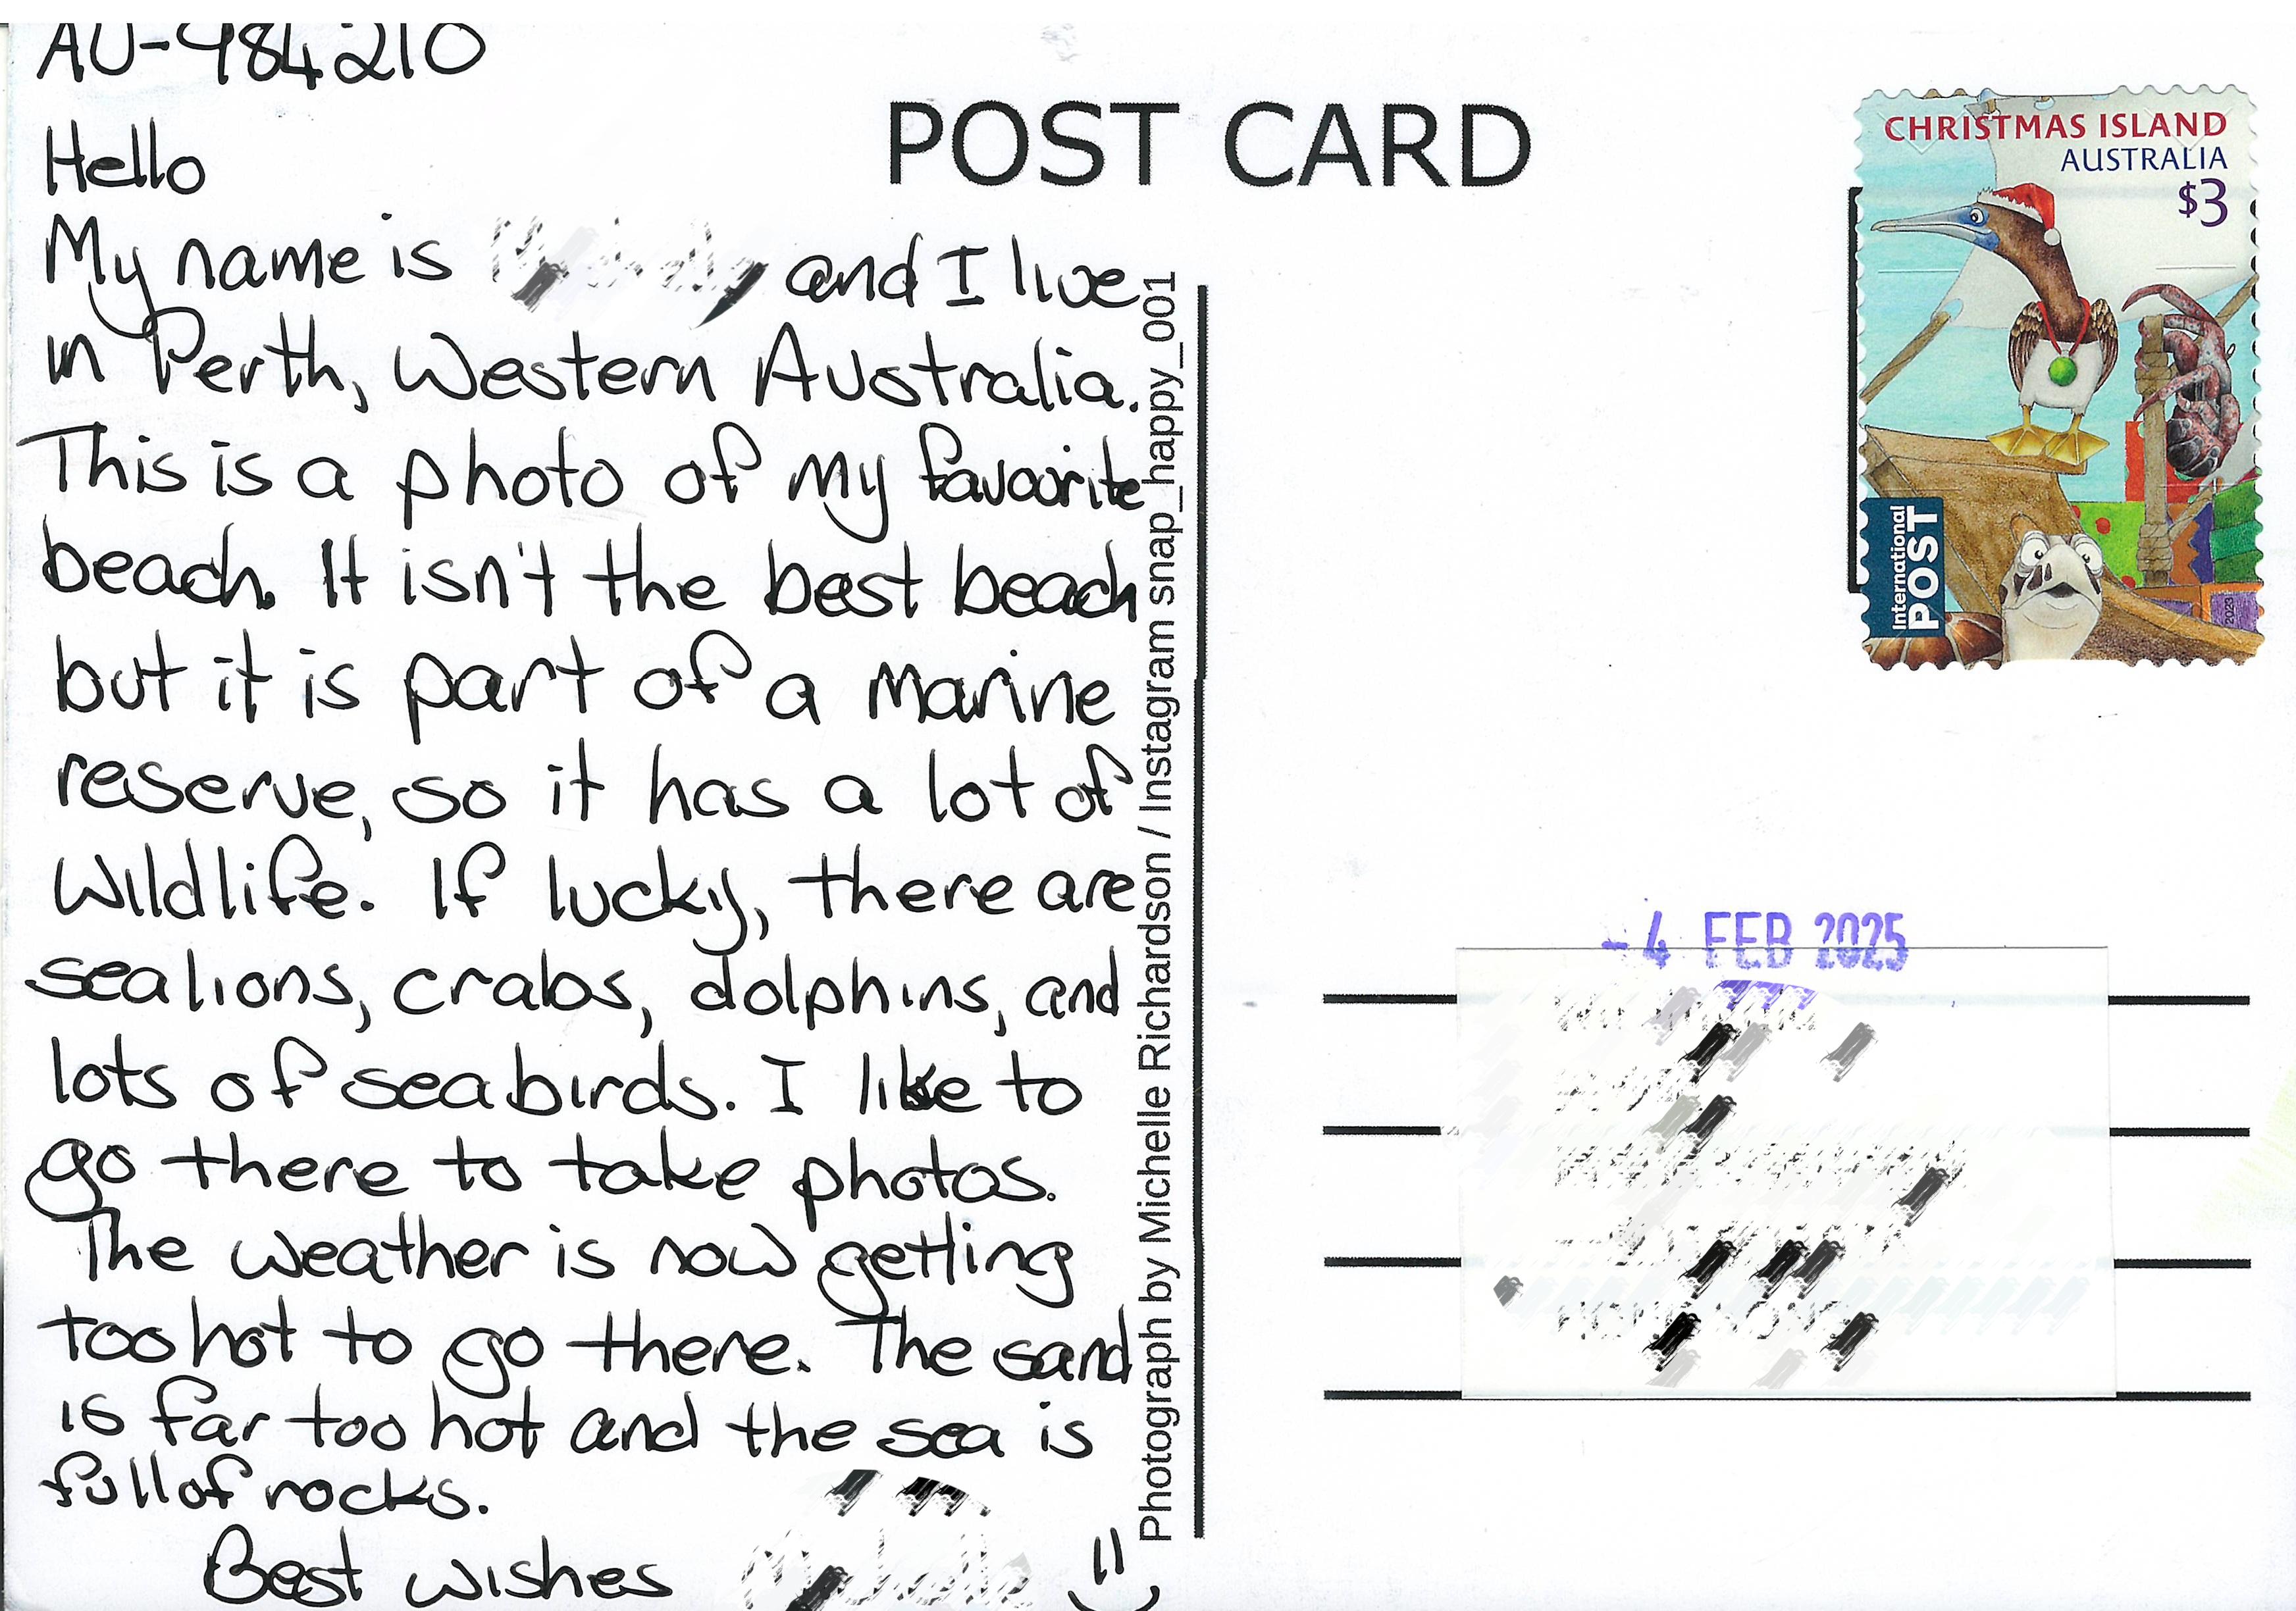 AU-984210
Hello
My name is and I live
in Perth, Western Australia.
This is a photo of my favourite
beach. It isn't the best beach
but it is part of a marine
reserve, so it has a lot of
wildlife. If lucky, there are
sealions, crabs, dolphins, and
lots of seabirds. I like to
go there to take photos.
The weather is now getting
too hot to go there. The sand
is far too hot and the sea is
full of rocks.
Best wishes
Photograph by Michelle Richardson / Instagram snap_happy_001
POST CARD
CHRISTMAS ISLAND
AUSTRALIA
$3
International
POST
2023
-4 FEB 2025